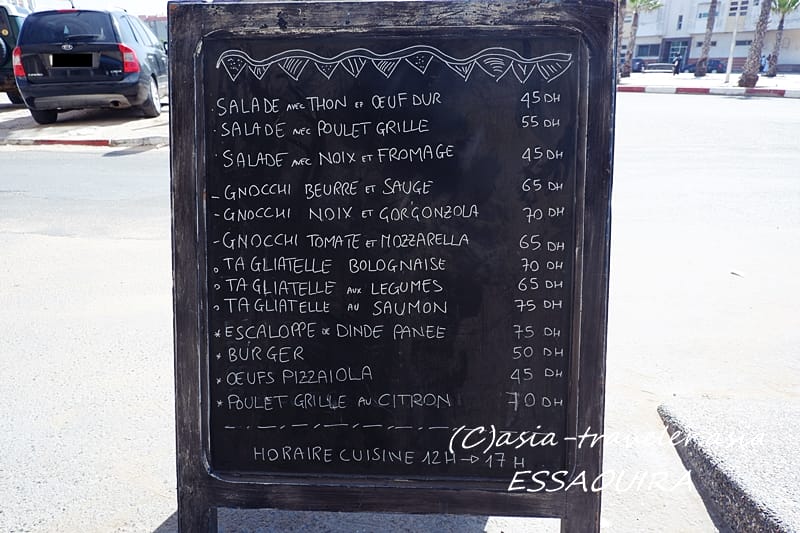 · SALADE AVEC THON ET ŒUF DUR 45 DH
· SALADE AVEC POULET GRILLE 55 DH
· SALADE AVEC NOIX ET FROMAGE 45 DH
- GNOCCHI BEURRE ET SAUGE 65 DH
- GNOCCHI NOIX ET GORGONZOLA 70 DH
- GNOCCHI TOMATE ET MOZZARELLA 65 DH
° TAGLIATELLE BOLOGNAISE 70 DH
° TAGLIATELLE AUX LEGUMES 65 DH
° TAGLIATELLE AU SAUMON 75 DH
* ESCALOPPE DE DINDE PANEE 75 DH
* BURGER 50 DH
* ŒUFS PIZZAIOLA 45 DH
* POULET GRILLE AU CITRON 70 DH
(C)asia-traveler.asia
HORAIRE CUISINE 12H → 17H
ESSAOUIRA